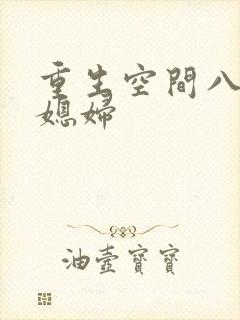 重生空間八
媳婦
油壺寶寶